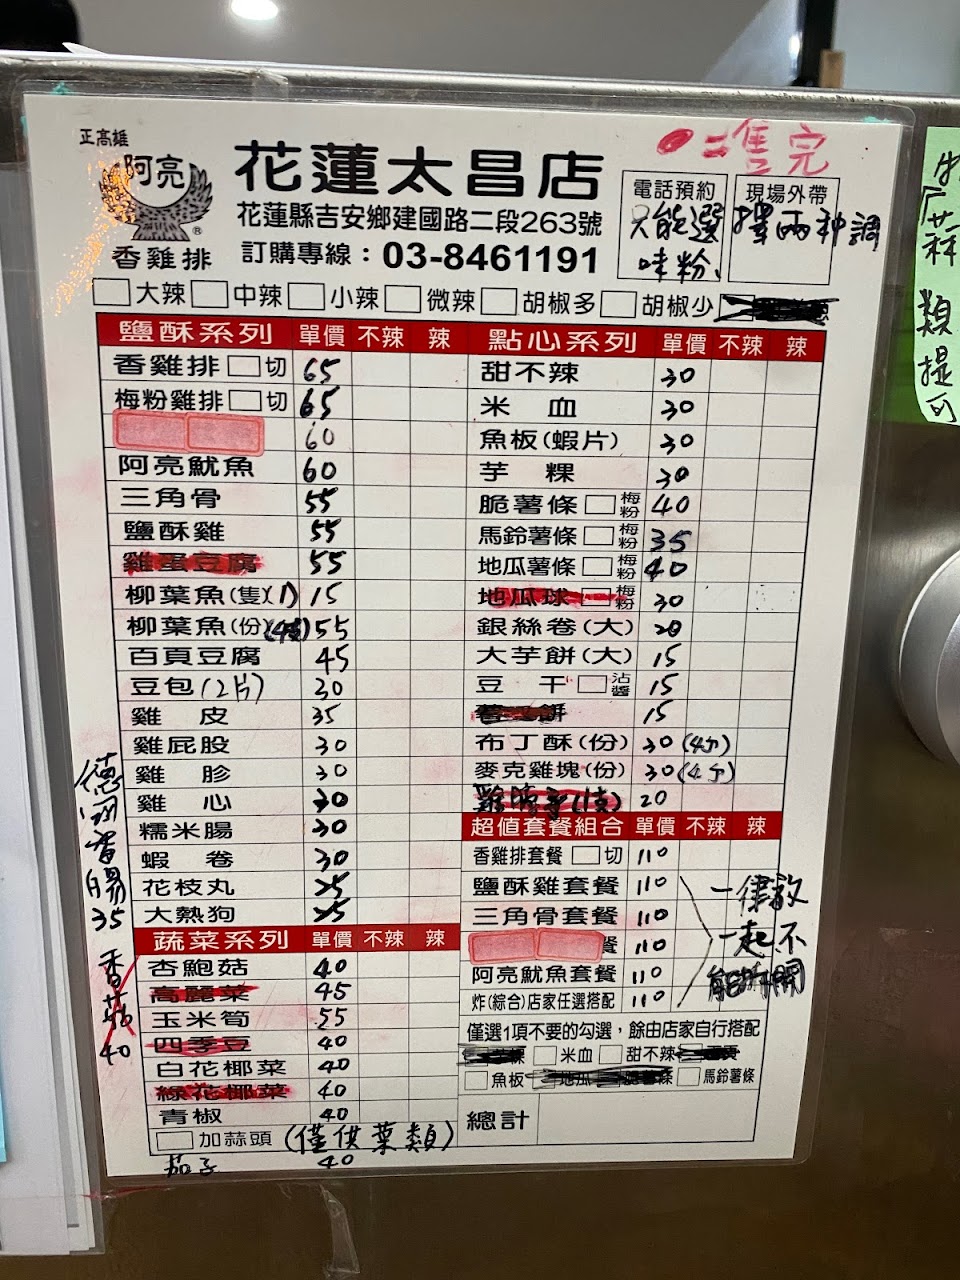 正高雄
阿亮
香雞排
®
花蓮太昌店
花蓮縣吉安鄉建國路二段263號
訂購專線：03-8461191
=售完
電話預約 現場外帶
只能選擇兩种調
味粉、
大辣 中辣 小辣 微辣 胡椒多 胡椒少
鹽酥系列 單價 不辣 辣
香雞排 切 65
梅粉雞排 切 65
60
阿亮魷魚 60
三角骨 55
鹽酥雞 55
雞蛋豆腐 55
柳葉魚(隻)(1) 15
柳葉魚(份)(4隻) 55
百頁豆腐 45
豆包(2片) 30
雞皮 35
雞屁股 30
雞胗 30
雞心 30
糯米腸 30
蝦卷 30
花枝丸 25
大熱狗 25
蔬菜系列 單價 不辣 辣
杏鮑菇 40
高麗菜 45
玉米筍 55
四季豆 40
白花椰菜 40
綠花椰菜 40
青椒 40
加蒜頭 (僅供葉類)
茄子 40
點心系列 單價 不辣 辣
甜不辣 30
米血 30
魚板(蝦片) 30
芋粿 30
脆薯條 梅粉 40
馬鈴薯條 梅粉 35
地瓜薯條 梅粉 40
地瓜球 梅粉 30
銀絲卷(大) 20
大芋餅(大) 15
豆干 沾醬 15
15
布丁酥(份) 30 (4个)
麥克雞塊(份) 30 (4个)
20
超值套餐組合 單價 不辣 辣
香雞排套餐 切 110
鹽酥雞套餐 110
三角骨套餐 110
餐 110
阿亮魷魚套餐 110
炸(綜合)店家任選搭配 110
一律放
一起不
能分開
僅選1項不要的勾選，餘由店家自行搭配
米血 甜不辣
魚板 地瓜 馬鈴薯條
總計
德國香腸
35
香菇
40
蒜
類提
可